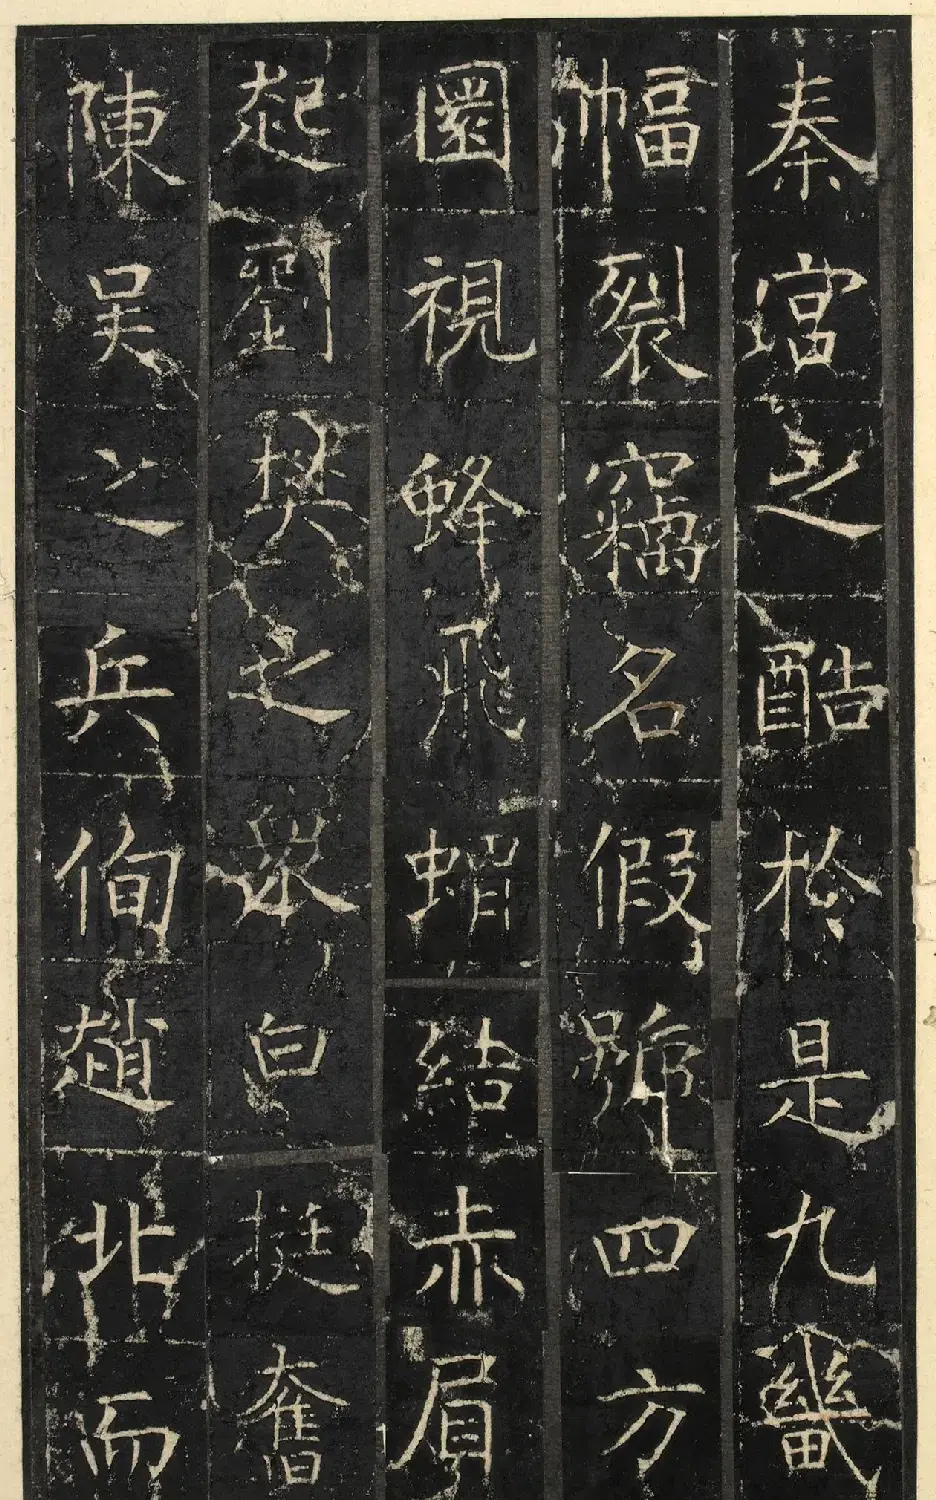 秦之酷於是九畿
幅裂竊名假號四方
圜視蜂飛蝟結赤眉
起劉樊之眾白挺奮
陳吳之兵徇趙北而